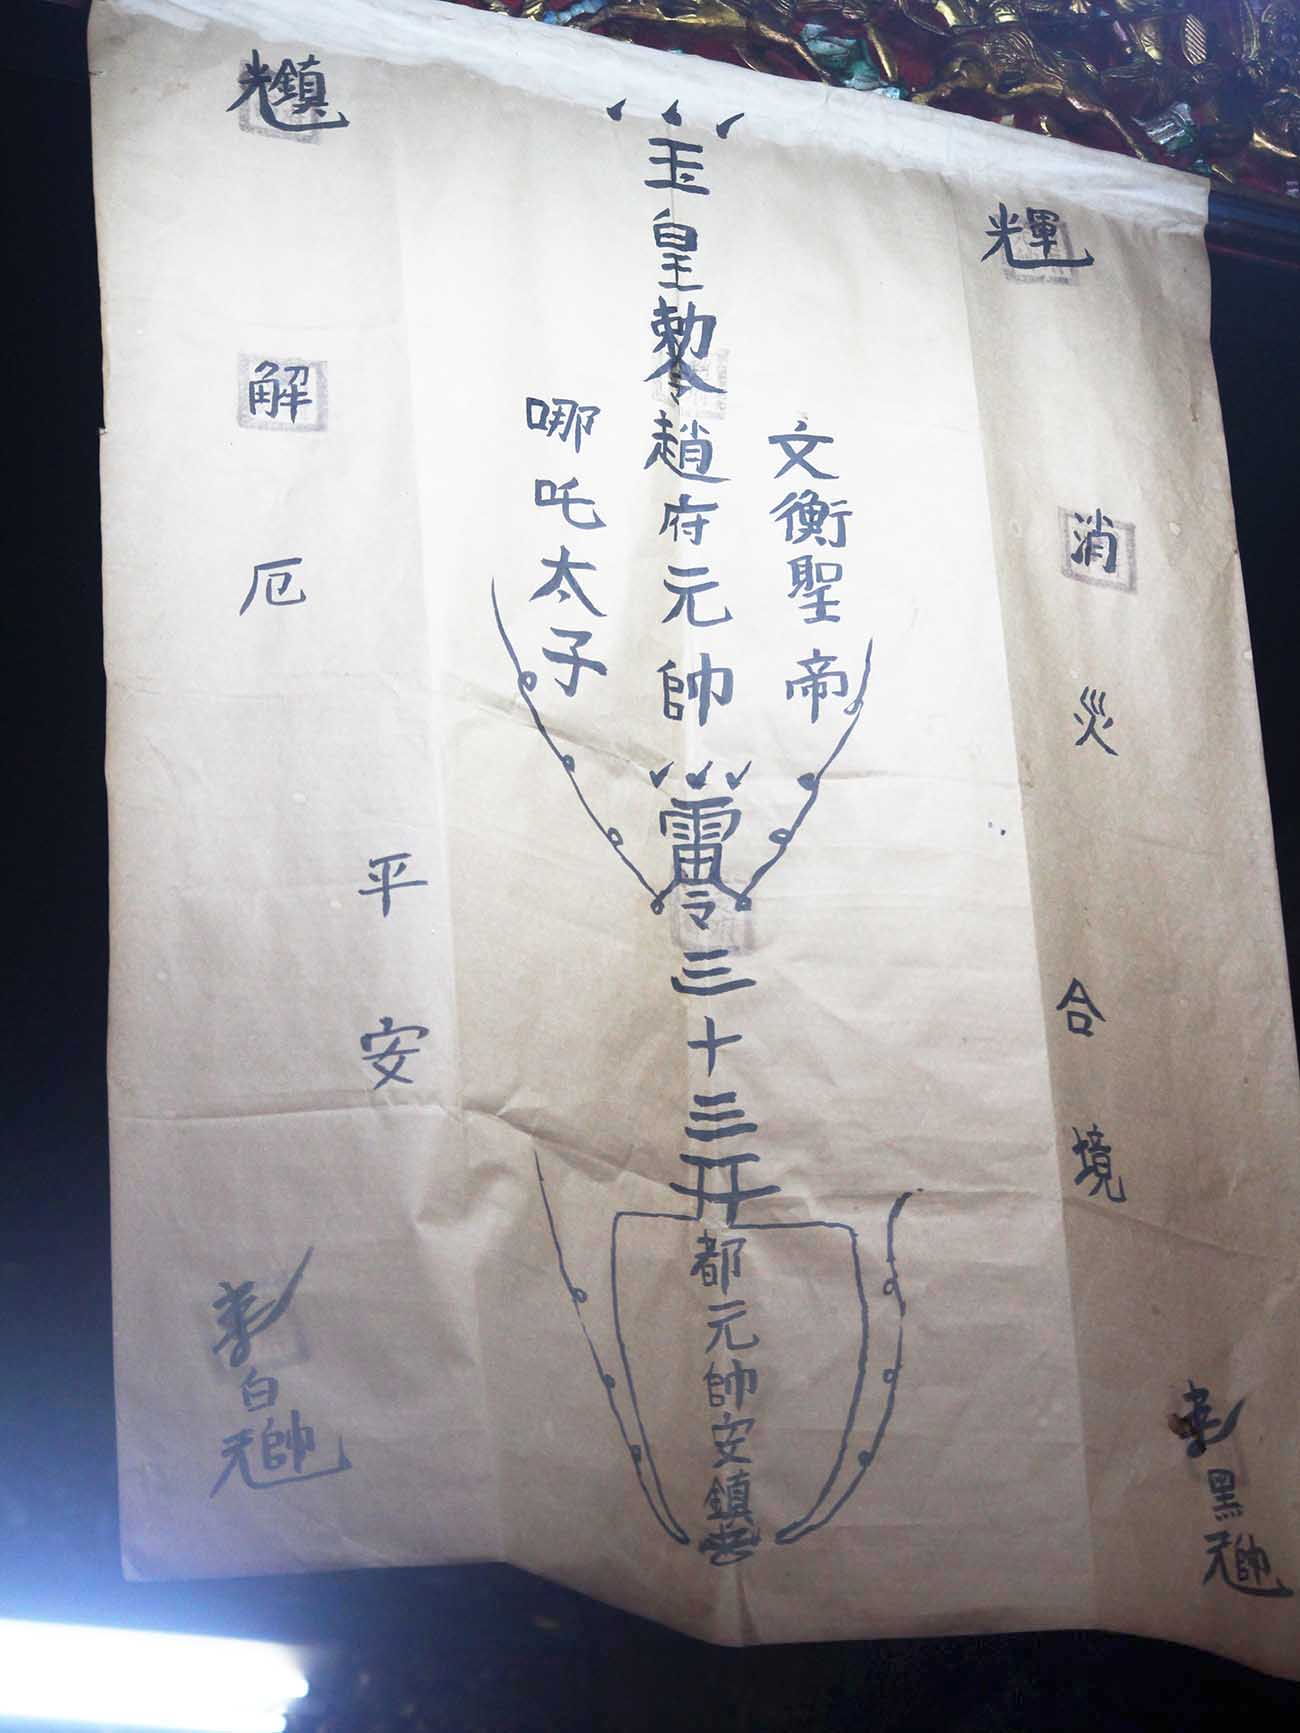 輝消災
合境
奉黑元帥
文衡聖帝
玉皇勅令趙府元帥雷令三十三开都元帥安鎮
哪吒太子
平安
解厄
白元帥